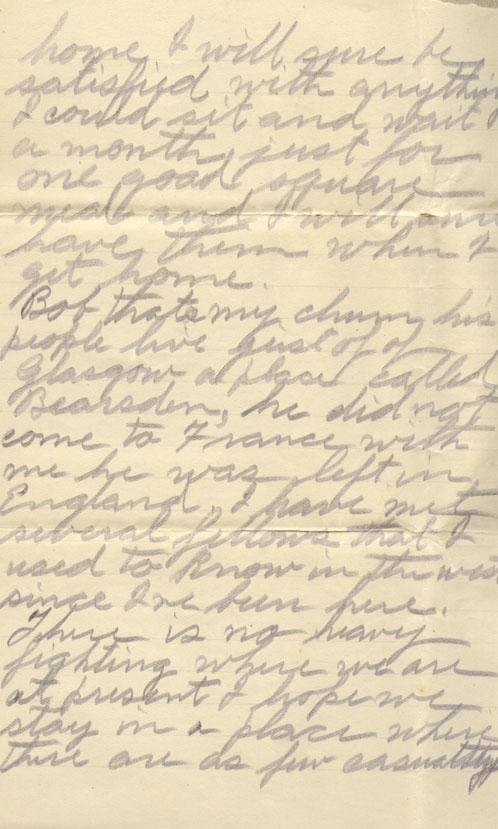 home I will sure be
satisfied with anythin
I could sit and wait
a month, just for
one good square
meal and I will sure
have them when I
get home.
Bob thats my chum his
people live just of of
Glasgow a place called
Bearsden, he did not
come to France with
me he was left in
England, I have met
several fellows that I
used to know in the west
since I've been here.
There is no heavy
fighting where we are
at present I hope we
stay in a place where
there are as few casualtys